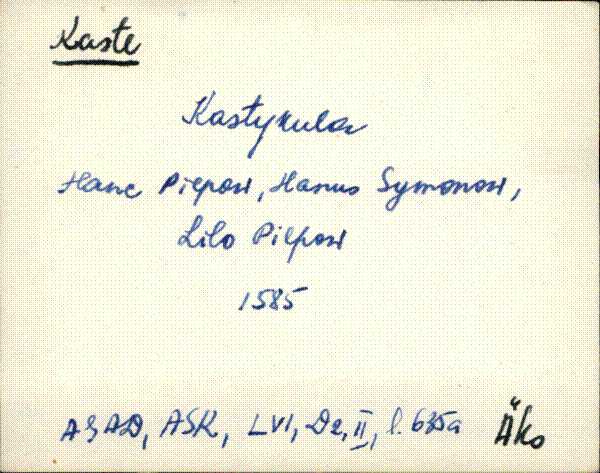 Kaste
Kastykula
Hane Pilposi, Hanus Symonosi,
Lilo Pilposi
1585
AGAD, ASK, LVI, D2, II, l. 635a Äko